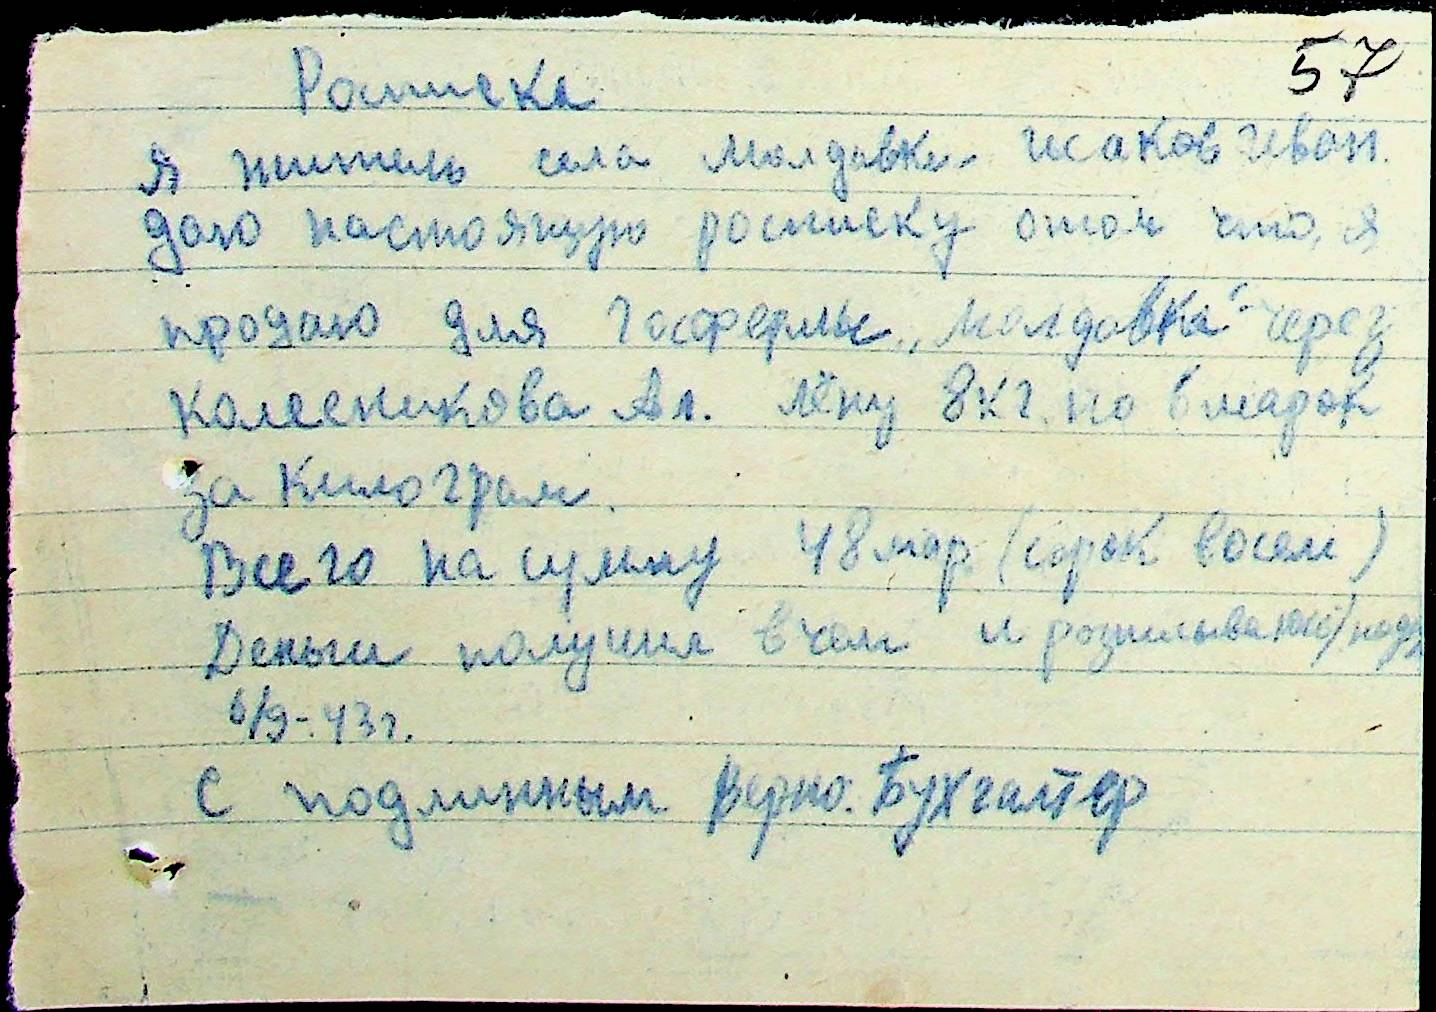 57
Росписка
Я житель села Молдавки Исаков Иван.
даю настоящую росписку отом что, я
продаю для Госфермы „Молдавка" через
Колесникова Ал. лёну 8 кг. по 6 марок
за килограм.
Всего на сумму 48 мар (сорок восем)
Деньги получил вчом и розписываюсь /подп
6/9-43 г.
С подлинным верно. Бухгалтер